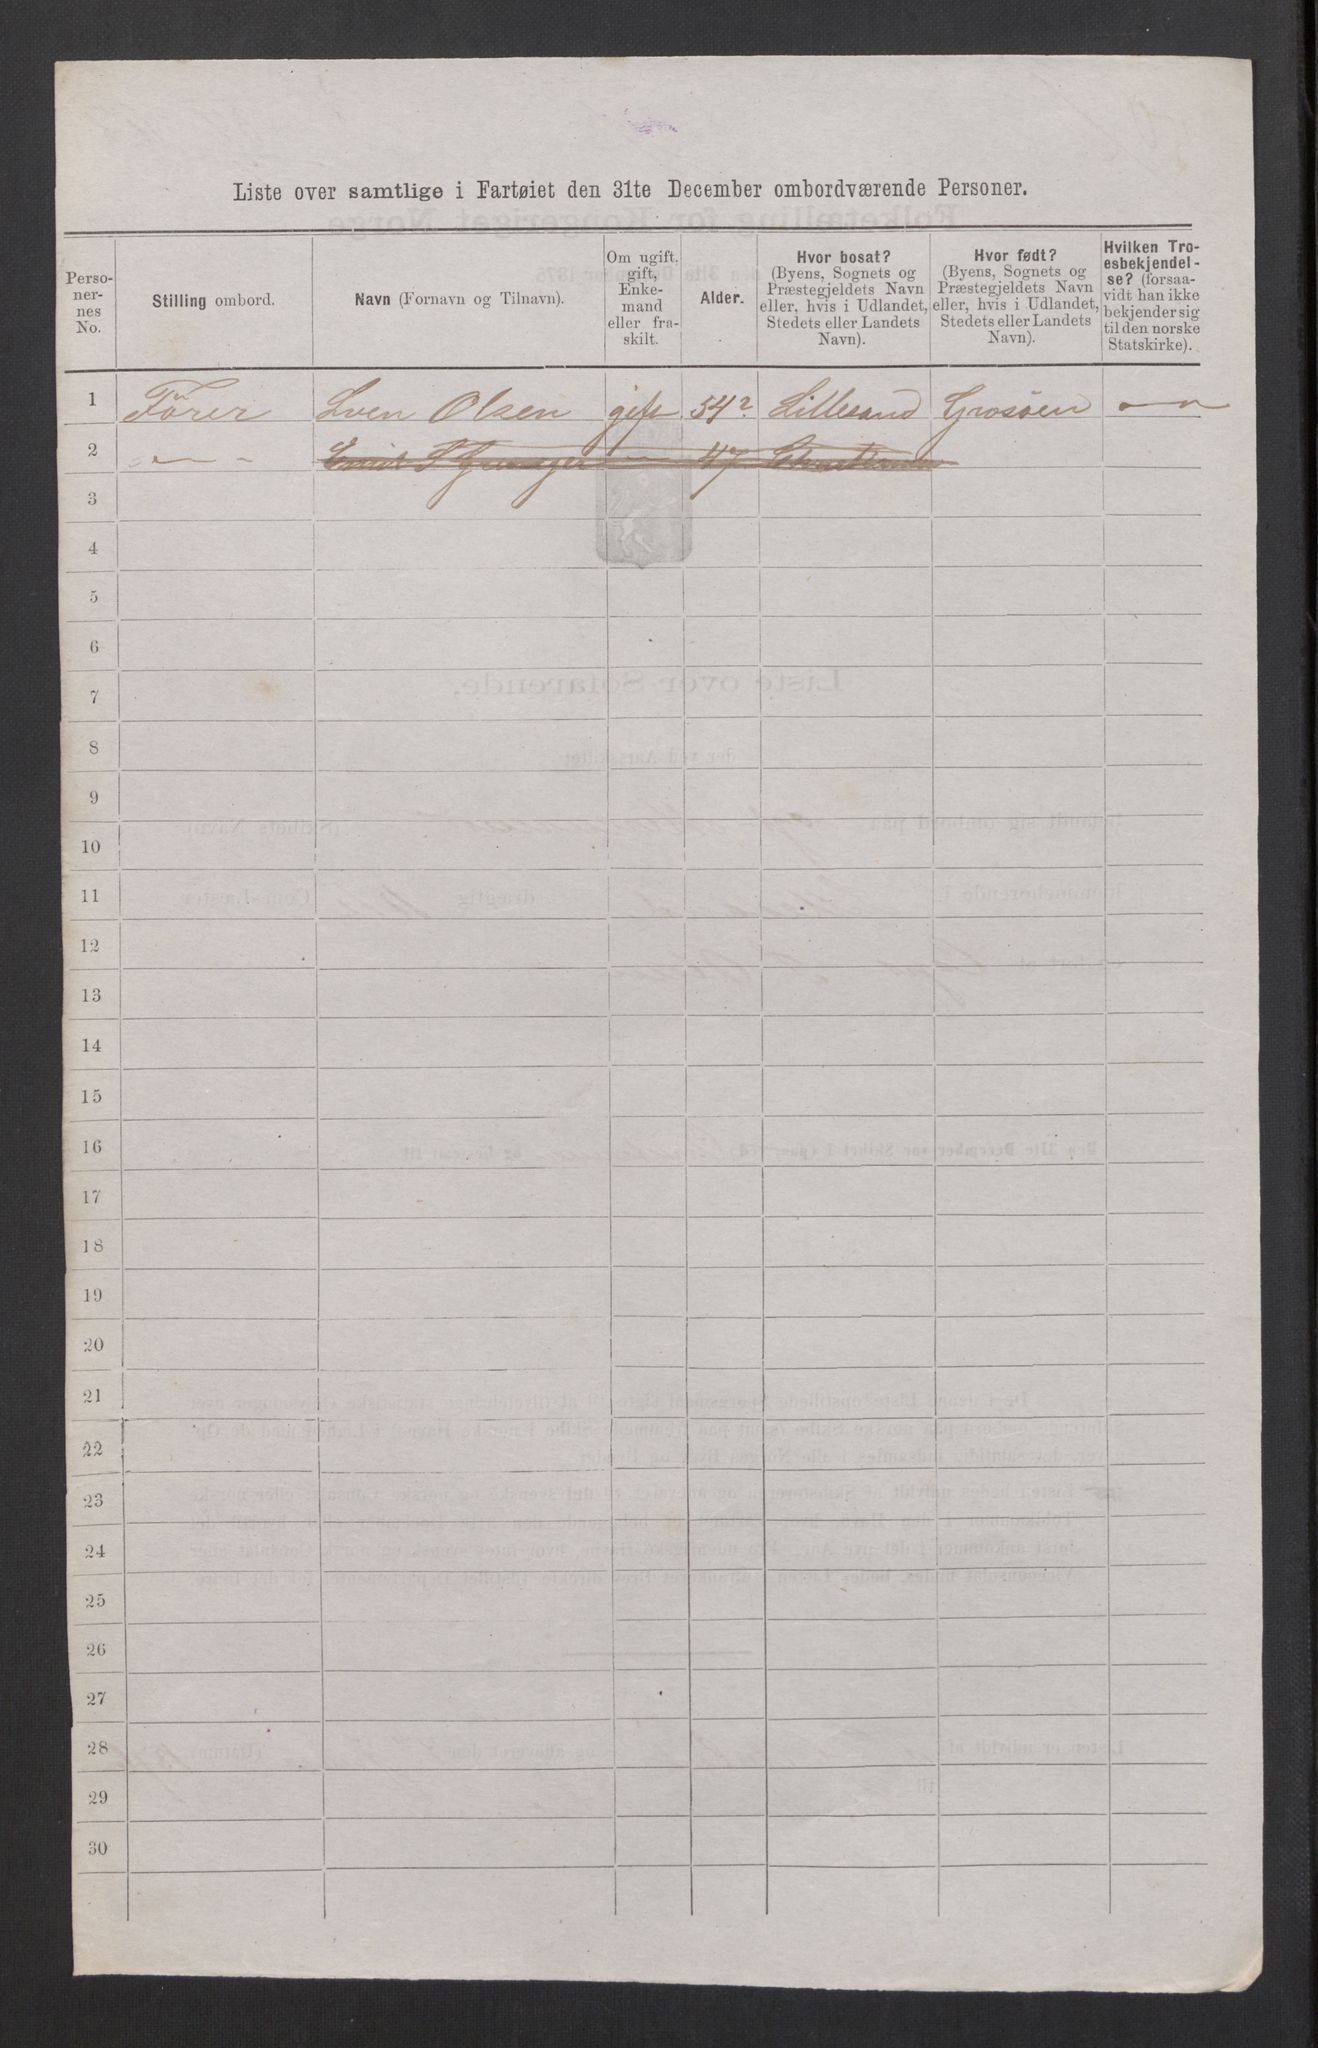 Liste over samtlige i Fartøiet den 31te December ombordværende Personer.
Perso-
ner-
nes
No.
Stilling ombord.
Navn (Fornavn og Tilnavn).
Om ugift,
gift,
Enke-
mand
eller fra-
skilt.
Alder.
Hvor bosat?
(Byens, Sognets og
Præstegjeldets Navn
eller, hvis i Udlandet,
Stedets eller Landets
Navn).
Hvor født?
(Byens, Sognets og
Præstegjeldets Navn
eller, hvis i Udlandet,
Stedets eller Landets
Navn).
Hvilken Tro-
esbekjendel-
se? (forsaa-
vidt han ikke
bekjender sig
til den norske
Statskirke).
1 Förer Sven Olsen gift 54 Lillesand Grosöen — „ —
2 — „ — 47
3
4
5
6
7
8
9
10
11
12
13
14
15
16
17
18
19
20
21
22
23
24
25
26
27
28
29
30